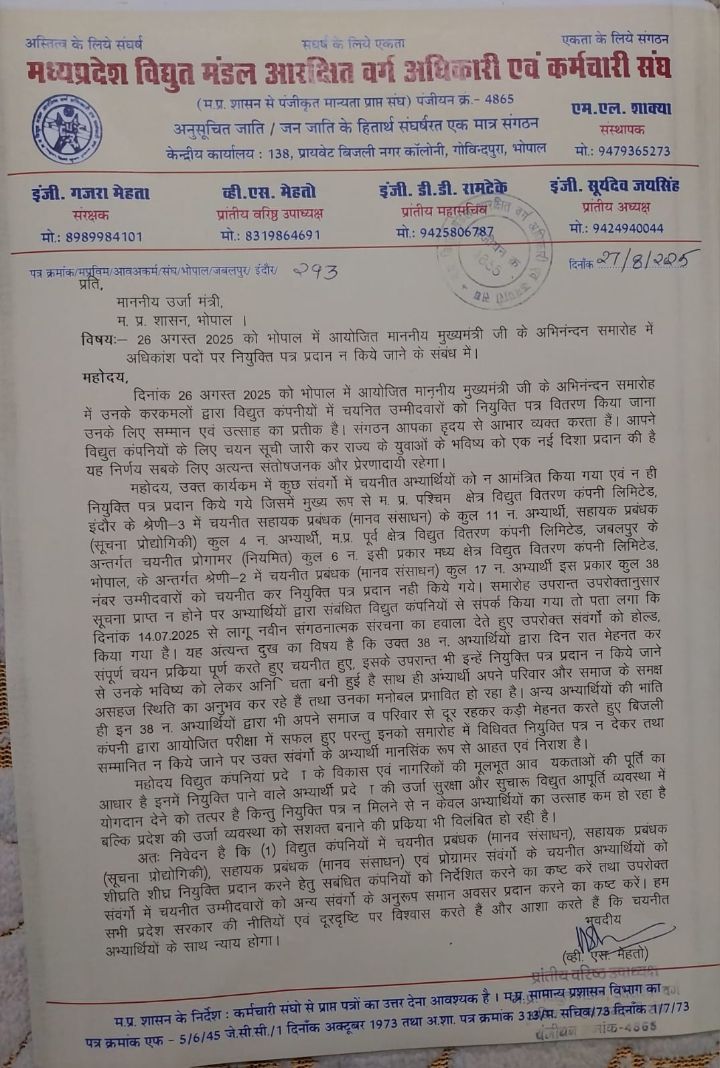 अस्तित्व के लिये संघर्ष संघर्ष के लिये एकता एकता के लिये संगठन
मध्यप्रदेश विद्युत मंडल आरक्षित वर्ग अधिकारी एवं कर्मचारी संघ
(म.प्र. शासन से पंजीकृत मान्यता प्राप्त संघ) पंजीयन क्रं.- 4865
एम.एल. शाक्या
अनुसूचित जाति / जन जाति के हितार्थ संघर्षरत एक मात्र संगठन
संस्थापक
केन्द्रीय कार्यालय : 138, प्रायवेट बिजली नगर कॉलोनी, गोविन्दपुरा, भोपाल
मो.: 9479365273
इंजी. गजरा मेहता व्ही.एस. मेहतो इंजी. डी.डी. रामटेके इंजी. सूर्यदेव जयसिंह
संरक्षक प्रांतीय वरिष्ठ उपाध्यक्ष प्रांतीय महासचिव प्रांतीय अध्यक्ष
मो.: 8989984101 मो.: 8319864691 मो.: 9425806787 मो.: 9424940044
पत्र क्रमांक/मप्रविम/आवअकर्म/संघ/भोपाल/जबलपुर/ इंदौर/ 293 दिनाँक 27/8/2025
प्रति,
माननीय उर्जा मंत्री,
म. प्र. शासन, भोपाल ।
विषय:– 26 अगस्त 2025 को भोपाल में आयोजित माननीय मुख्यमंत्री जी के अभिनंदन समारोह में
अधिकांश पदों पर नियुक्ति पत्र प्रदान न किये जाने के संबंध में।
महोदय,
दिनांक 26 अगस्त 2025 को भोपाल में आयोजित माननीय मुख्यमंत्री जी के अभिनंदन समारोह
में उनके करकमलों द्वारा विद्युत कंपनीयों में चयनित उम्मीदवारों को नियुक्ति पत्र वितरण किया जाना
उनके लिए सम्मान एवं उत्साह का प्रतीक है। संगठन आपका हृदय से आभार व्यक्त करता हैं। आपने
विद्युत कंपनियों के लिए चयन सूची जारी कर राज्य के युवाओं के भविष्य को एक नई दिशा प्रदान की है
यह निर्णय सबके लिए अत्यन्त संतोषजनक और प्रेरणादायी रहेगा।
महोदय, उक्त कार्यकम में कुछ संवर्गो में चयनीत अभ्यार्थियों को न आमंत्रित किया गया एवं न ही
नियुक्ति पत्र प्रदान किये गये जिसमें मुख्य रूप से म. प्र. पश्चिम क्षेत्र विद्युत वितरण कंपनी लिमिटेड,
इंदौर के श्रेणी–3 में चयनीत सहायक प्रबंधक (मानव संसाधन) के कुल 11 न. अभ्यार्थी, सहायक प्रबंधक
(सूचना प्रोद्योगिकी) कुल 4 न. अभ्यार्थी, म.प्र. पूर्व क्षेत्र विद्युत वितरण कंपनी लिमिटेड, जबलपुर के
अन्तर्गत चयनीत प्रोगामर (नियमित) कुल 6 न. इसी प्रकार मध्य क्षेत्र विद्युत वितरण कंपनी लिमिटेड,
भोपाल, के अन्तर्गत श्रेणी–2 में चयनीत प्रबंधक (मानव संसाधन) कुल 17 न. अभ्यार्थी इस प्रकार कुल 38
नंबर उम्मीदवारों को चयनीत कर नियुक्ति पत्र प्रदान नही किये गये। समारोह उपरान्त उपरोक्तानुसार
सूचना प्राप्त न होने पर अभ्यार्थियों द्वारा संबंधित विद्युत कंपनियों से संपर्क किया गया तो पता लगा कि
दिनांक 14.07.2025 से लागू नवीन संगठनात्मक संरचना का हवाला देते हुए उपरोक्त संवर्गो को होल्ड,
किया गया है। यह अंत्यन्त दुख का विषय है कि उक्त 38 न. अभ्यार्थियों द्वारा दिन रात मेहनत कर
संपूर्ण चयन प्रकिया पूर्ण करते हुए चयनीत हुए, इसके उपरान्त भी इन्हें नियुक्ति पत्र प्रदान न किये जाने
से उनके भविष्य को लेकर अनि चता बनी हुई है साथ ही अंभ्यार्थी अपने परिवार और समाज के समक्ष
असहज स्थिति का अनुभव कर रहे हैं तथा उनका मनोबल प्रभावित हो रहा है। अन्य अभ्यार्थियों की भाति
ही इन 38 न. अभ्यार्थियों द्वारा भी अपने समाज व परिवार से दूर रहकर कड़ी मेहनत करते हुए बिजली
कंपनी द्वारा आयोजित परीक्षा में सफल हुए परन्तु इनको समारोह में विधिवत नियुक्ति पत्र न देकर तथा
सम्मानित न किये जाने पर उक्त संवर्गो के अभ्यार्थी मानसिक रूप से आहत एवं निराश है।
महोदय विद्युत कंपनियां प्रदे T के विकास एवं नागरिकों की मूलभूत आव यकताओं की पूर्ति का
आधार है इनमें नियुक्ति पाने वाले अभ्यार्थी प्रदे T की उर्जा सुरक्षा और सुचारू विद्युत आपूर्ति व्यवस्था में
योगदान देने को तत्पर है किन्तु नियुक्ति पत्र न मिलने से न केवल अभ्यार्थियों का उत्साह कम हो रहा है
बल्कि प्रदेश की उर्जा व्यवस्था को सशक्त बनाने की प्रक्रिया भी विलंबित हो रही है।
अतः निवेदन है कि (1) विद्युत कंपनियों में चयनीत प्रबंधक (मानव संसाधन), सहायक प्रबंधक
(सूचना प्रोद्योगिकी), सहायक प्रबंधक (मानव संसाधन) एवं प्रोग्रामर संवर्गो के चयनीत अभ्यार्थियों को
शीघ्रति शीघ्र नियुक्ति प्रदान करने हेतु सबंधित कंपनियों को निर्देशित करने का कष्ट करें तथा उपरोक्त
संवर्गो में चयनीत उम्मीदवारों को अन्य संवर्गो के अनुरूप समान अवसर प्रदान करने का कष्ट करें। हम
सभी प्रदेश सरकार की नीतियों एवं दूरदृष्टि पर विश्वास करते हैं और आशा करते हैं कि चयनीत
अभ्यार्थियों के साथ न्याय होगा।
भवदीय
(व्ही. एस. मेहतो)
प्रांतीय वरिष्ठ उपाध्यक्ष
म.प्र. शासन के निर्देश : कर्मचारी संघो से प्राप्त पत्रों का उत्तर देना आवश्यक है । म.प्र. सामान्य प्रशासन विभाग का
पत्र क्रमांक एफ - 5/6/45 जे.सी.सी./1 दिनाँक अक्टूबर 1973 तथा अ.शा. पत्र क्रमांक 313/म. सचिव/73 दिनाँक 1/7/73
पंजीयन क्रमांक-4865